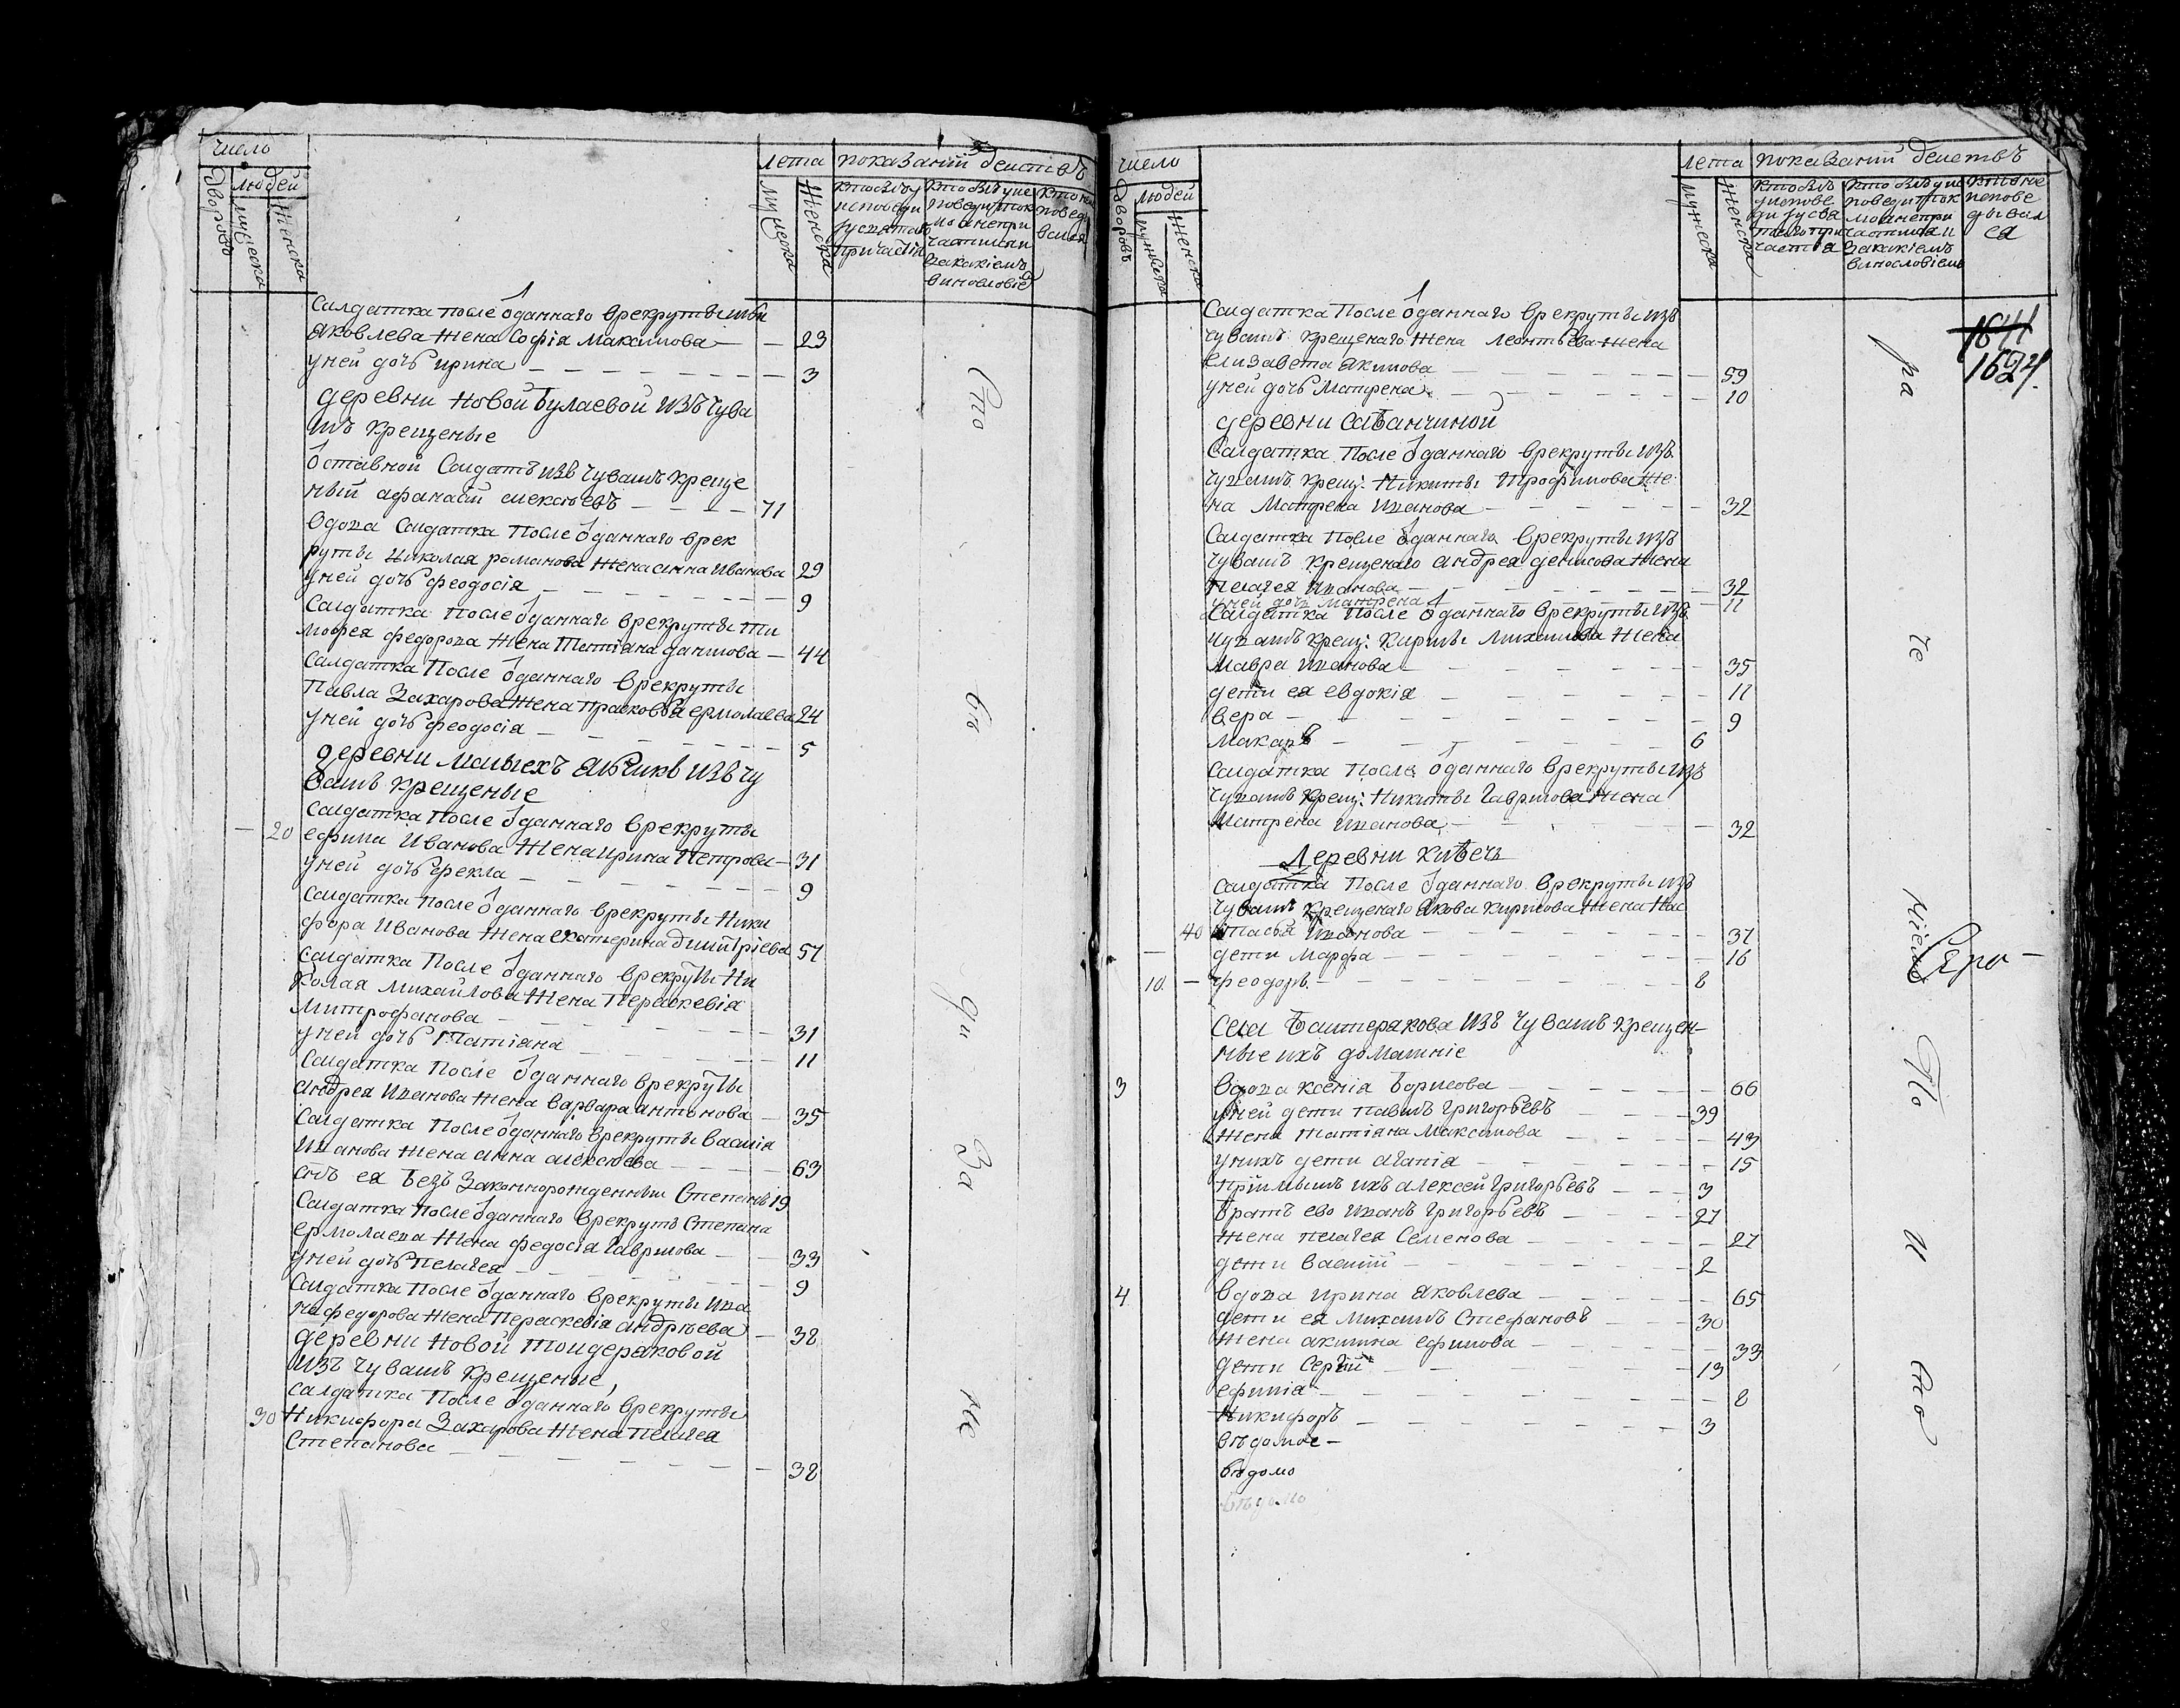 число
людей
дворовъ
мужеска
женска
лета
показаниі деиствъ
мужеска
женска
салдатка после отданнаго врекруты
Яковлева жена Софія Максимова — 23
унеи дочь ирина — 3
деревни Новой Булаевой изъ чува
шъ крещеные
отставной Салдатъ изъ чувашъ креще
ный афанасіи алексѣевъ — 71
вдова Салдатка после отданнаго врек
руты Николая романова жена анна Иванова 29
унеи дочь феодосія — 9
Салдатка после отданнаго врекруты Ти
мофея федорова жена Татіяна данилова — 44
Салдатка После отданнаго врекруты
Павла Захарова жена Прасковья ермолаева 24
унеи дочь феодосія — 5
деревни малыхъ изъ чу
вашъ крещеные
салдатка после отданнаго врекруты
20 ефима Иванова жена ирина Петрова — 31
унеи дочь фекла — 9
салдатка после отданнаго врекруты Ники
фора Иванова жена екатерина дмитріева 57
салдатка После отданнаго врекруты Ни
колая Михайлова жена Параскевія
Митрофанова — 31
унеи дочь Татіяна — 11
Салдатка После отданнаго врекруты
андрея Иванова жена варвара антонова — 35
Салдатка После отданнаго врекруты василія
Иванова жена анна алексѣева — 63
снъ ея Безъ Законнорожденныи Степанъ 19
Салдатка После отданнаго врекрутъ Степана
ермолаева жена федосія Гаврилова — 33
унеи дочь Пелагея — 9
Салдатка После отданнаго врекруты Ива
на федорова жена Параскевія андрѣева — 38
деревни Новой Тоидеряковой
изъ чувашъ крещеные
салдатка После отданнаго врекруты
30 Никифора Захарова жена Пелагея
Степанова — 38
число
людей
дворовъ
мужеска
женска
лета
показаниі деиствъ
мужеска
женска
1624
Салдатка После отданнаго врекруты изъ
чувашъ крещенаго жена Леонтьева жена
елизавета Якимова — 59
унеи дочь Матрена — 10
деревни Сабанчиной
Салдатка После отданнаго врекруты изъ
чувашъ крещ: Никиты Трофимова же
на Матрена Иванова — 32
Салдатка После отданнаго врекруты изъ
чувашъ крещенаго андрея денисова жена
Пелагея Иванова — 32
унеи дочь Матрена — 11
Салдатка После отданнаго врекруты изъ
чувашъ крещ: Кирилы Михаилова жена
мавра Иванова — 35
дети ея евдокія — 11
вера — 9
Макаръ — 6
салдатка После отданнаго врекруты изъ
чувашъ крещ: Никиты Гаврилова жена
Матрена Иванова — 32
Деревни Кибечь
салдатка После отданнаго врекруты изъ
чувашъ крещенаго Якова Кирилова жена Нас
40 тасья Иванова — 37
дети Марфа — 16
10. феодоръ — 8
Села Баитерякова изъ чувашъ крещен—
ные ихъ домашніе
3 вдова ксенія Борисова — 66
унеи дети павилъ Григорьевъ — 39
жена татіяна Максимова — 43
унихъ дети агапія — 15
Пріимышъ ихъ алексей Григорьевъ — 3
Братъ ево Иванъ Григорьевъ — 27
жена пелагея Семенова — 27
дети василіи — 2
4 вдова ирина Яковлева — 65
дети ея Михаилъ Стефановъ — 30
жена акилина ефимова — 33
дети Сергіи — 13
ефимія — 8
Никифоръ — 3
вѣдомое —
вѣдомо
вѣдомо